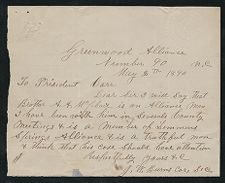 Greenwood Alliance
Number 90 N.C
May 2th 1890
To President Carr
Dear Sir I will Say that
Brother A. A. is an Alliance Man
I have been with him in Several County
Meetings & is a Member of Simmons
Springs Alliance & is a truthful man
& think that his case Should have attention
Respectfully yours &C
J. M. Burns Cor. Sec